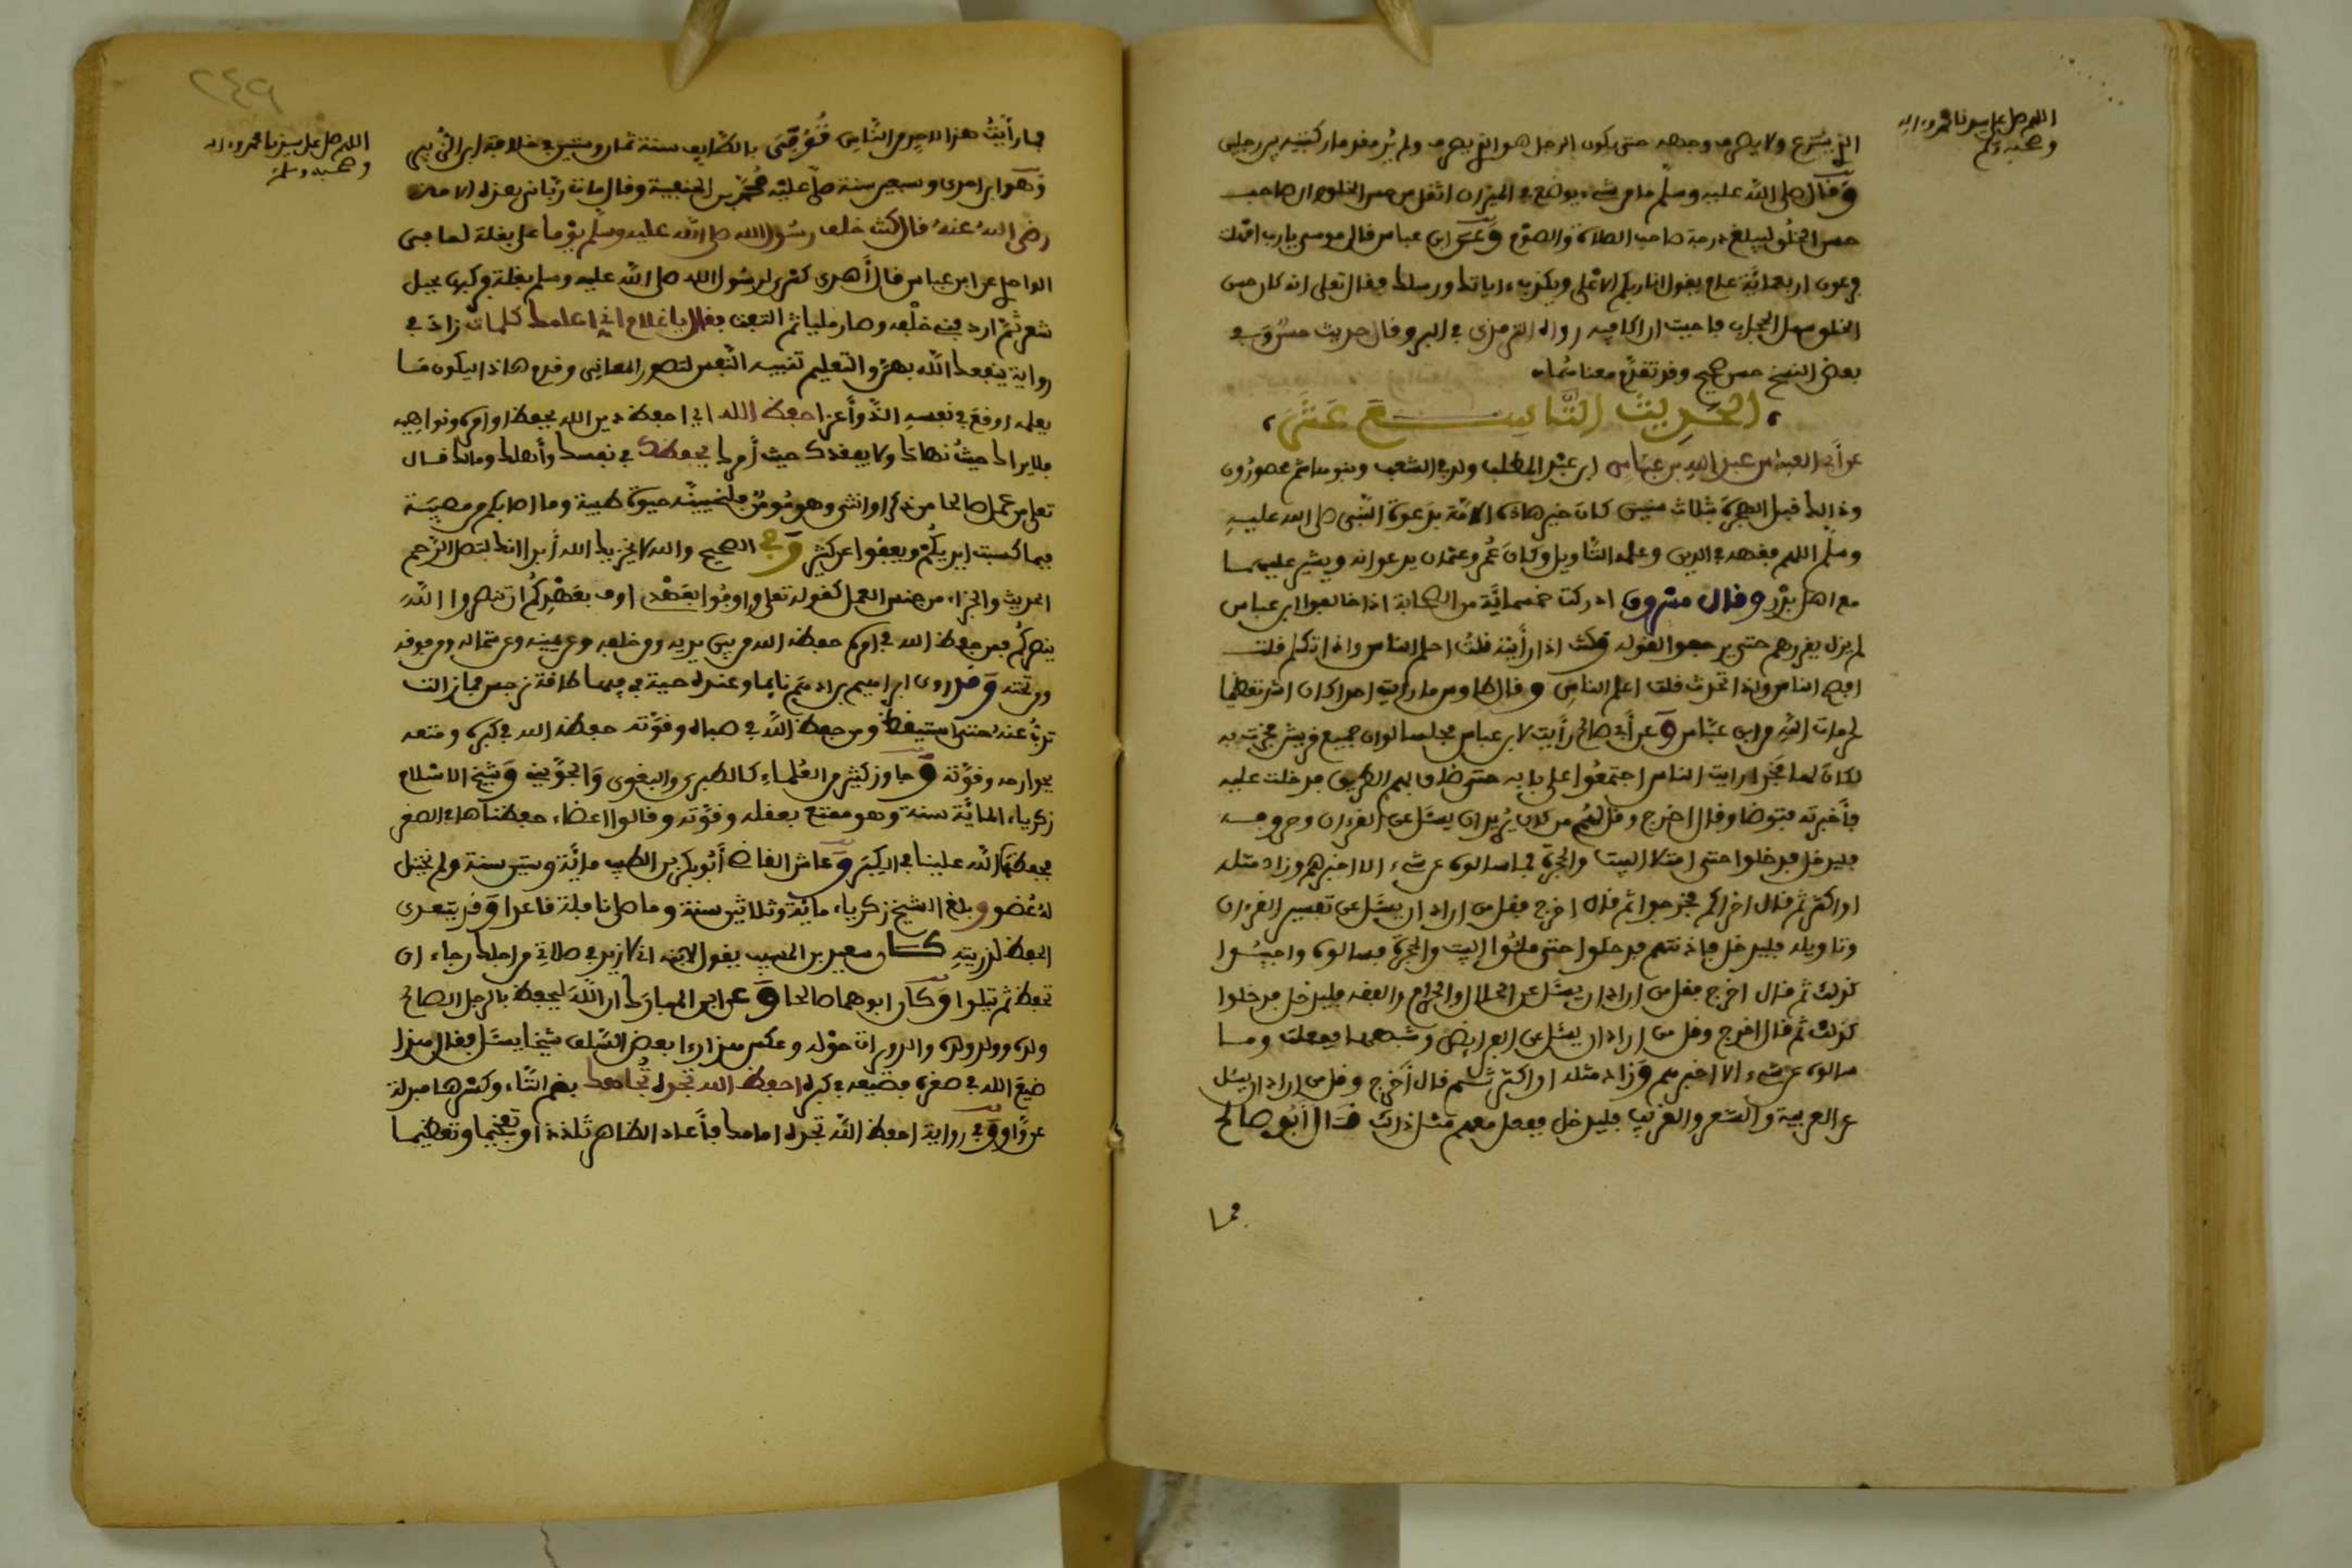 اللهم صل على سيدنا محمد وءاله
وصحبه وسلم
الذي ينزع ولا يصرف وجهه حتى يكون الرجل هو الذي يصرف ولم ير مقدما ركبتيه بين يدي جليس
وقال صلى الله عليه وسلم ما من شيء يوضع في الميزان اثقل من حسن الخلق وان صاحب
حسن الخلق ليبلغ درجة صاحب الصلاة والصوم وعن ابن عباس قال موسى يا رب امهلت
فرعون اربعمائة عام يقول انا ربكم الاعلى ويكذب بءاياتك ورسلك فقال تعلى انه كان حسن
الخلق سهل الحجاب فاحببت ان اكافيه رواه الترمذي في البر وقال حديث حسن وفي
بعض النسخ حسن صحيح وقد تقدم معناهما
الحديث التاسع عشر
عن أبي العباس عبد الله بن عباس ابن عبد المطلب ولد في الشعب وبنو هاشم محصورون
وذالك قبل الهجرة بثلاث سنين كان حبر هاذه الامة بدعوة النبي صلى الله عليه
وسلم اللهم فقهه في الدين وعلمه التأويل وكان عمر وعثمان يدعوانه ويشير عليهما
مع اهل بدر وقال مسروق ادركت خمسمائة من الصحابة اذا خالفوا ابن عباس
لم يزل يقررهم حتى يرجعوا لقوله وكنت اذا رأيته قلت احلم الناس واذا تكلم قلت
افصح الناس واذا تحدث قلت اعلم الناس وقال طاوس ما رأيت احدا كان اشد تعظيما
لحرمات الله من ابن عباس وعن أبي صالح رأيت لابن عباس مجلسا لو ان جميع قريش فخرت به
لكان لها فخرا رايت الناس اجتمعوا على بابه حتى ضاق بهم الطريق فدخلت عليه
فأخبرته فتوضا وقال اخرج وقل لهم من كان يريد ان يسئل عن القرءان وحروفه
فليدخل فدخلوا حتى امتلا البيت والحجرة فما سالوه عن شيء الا اخبرهم وزاد مثله
او اكثر ثم قال اخوانكم فخرجوا ثم قال اخرج فقل من اراد ان يسئل عن تفسير القرءان
وتاويله فليدخل فاذنتهم فدخلوا حتى ملئوا البيت والحجرة فسالوه واجيبوا
كذلك ثم قال اخرج فقل من اراد ان يسئل عن الحلال والحرام والفقه فليدخل فدخلوا
كذلك ثم قال اخرج وقل من اراد ان يسئل عن الفرايض وشبهها ففعلت وما
سالوه عن شيء الا اخبرهم وزاد مثله او اكثر ثم قال أخرج وقل من اراد ان يسئل
عن العربية والشعر والغريب فليدخل ففعل معهم مثل ذلك قال أبو صالح
فما
٢٤٩
اللهم صل على سيدنا محمد وءاله
وصحبه وسلم
فما رأيت هذا لاحد من الناس توفي بالطايف سنة ثمان وستين في خلافة ابن الزبير
وهو ابن احدى وسبعين سنة صلى عليه محمد بن الحنفية وقال مات رباني هذه الامة
رضي الله عنه قال كنت خلف رسول الله صلى الله عليه وسلم يوما على بغلة لما في
الواحدي عن ابن عباس قال أهدى كسرى لرسول الله صلى الله عليه وسلم بغلة فركبها بحبل
شعر ثم اردفني خلفه وصار مليا ثم التفت فقال يا غلام اني اعلمك كلمات زاد في
رواية ينفعك الله بهن والتعليم تنبيه النفس لتصور المعاني وقدم هاذا ليكون ما
يعلمه اوقع في نفسه احفظ الله اي احفظ دين الله بحفظ اوامره ونواهيه
فلا يراك حيث نهاك ولا يفقدك حيث أمرك يحفظك في نفسك وأهلك ومالك قال
تعلى من عمل صالحا من ذكر او انثى وهو مؤمن فلنحيينه حيوة طيبة وما اصابكم من مصيبة
فبما كسبت ايديكم ويعفوا عن كثير وفي الصحيح والله لا يخزيك الله أبدا انك لتصل الرحم
الحديث والجزاء من جنس العمل كقوله تعلى واوفوا بعهدي اوف بعهدكم ان تنصروا الله
ينصركم فمن حفظ الله في اوامره حفظه الله من بين يديه ومن خلفه وعن يمينه وعن شماله ومن فوقه
ومن تحته وقد روي ابراهيم بن ادهم نايما وعنده حية في فيها طاقة نرجس فما زالت
تذب عنه حتى استيقظ ومن حفظ الله في صباه وقوته حفظه الله في كبره ومتعه
بجوارحه وقوته وجاوز كثير من العلماء كالطبري والبغوي والجويني وشيخ الاسلام
زكرياء المائة سنة وهو ممتع بعقله وقوته وقالوا اعضاء حفظناها في الصغر
فحفظها الله علينا في الكبر وعاش القاضي أبو بكر بن الطيب مائة وستين سنة ولم يختل
له عضو وبلغ الشيخ زكرياء مائة وثلاثين سنة وما صلى نافلة قاعدا وقد يتعدى
الحفظ لذريته كان سعيد بن المسيب يقول لابنه اني لازيد في صلاتي من اجلك رجاء ان
تحفظ ثم تلا وكان ابوهما صالحا وعن ابن المبارك ان الله ليحفظ بالرجل الصالح
ولده وولد ولده والدويرات حوله وعكس هذا رءا بعض السلف شيخا يسئل فقال هذا
ضيع الله في صغره فضيعه في كبره احفظ الله تجده تجاهك بضم التاء وكسرها مبدلة
عن واو وفي رواية احفظ الله تجده امامك فأعاد الظاهر تلذذا وتفخيما وتعظيما